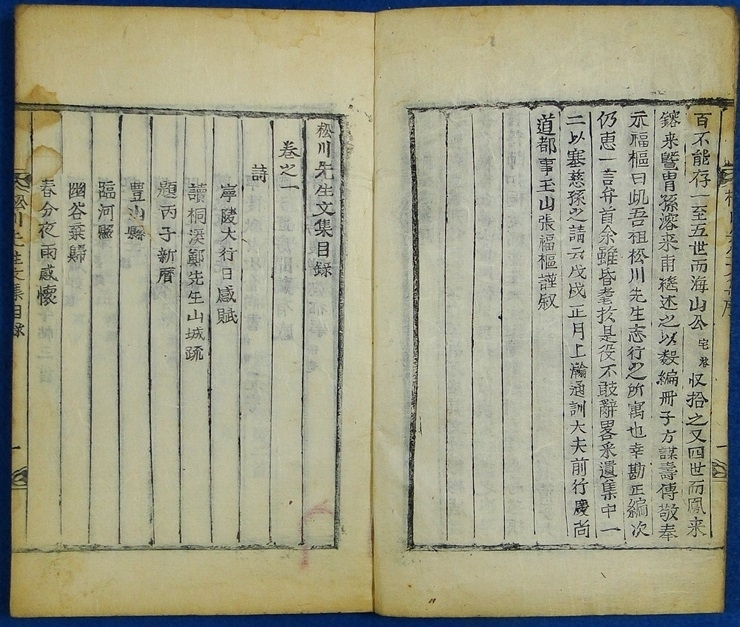 百不能存一至五世而海山公宅巷収拾之又四世而鳳来
鎔来曁胄孫溶来甫遂述之以數編冊子方謀壽傳敬奉
示福樞曰此吾祖松川先生志行之所寓也幸勘正編次
仍惠一言弁首余雖昏耄於是役不敢辭畧采遺集中一
二以塞慈孫之請云戊戌正月上瀚通訓大夫前行慶尚
道都事玉山張福樞謹叙
松川先生文集目録
卷之一
詩
寧陵大行日感賦
讀桐溪鄭先生山城疏
題丙子新曆
豊山縣
臨河縣
幽谷棄歸
春分夜雨感懷
松川先生文集目録 一